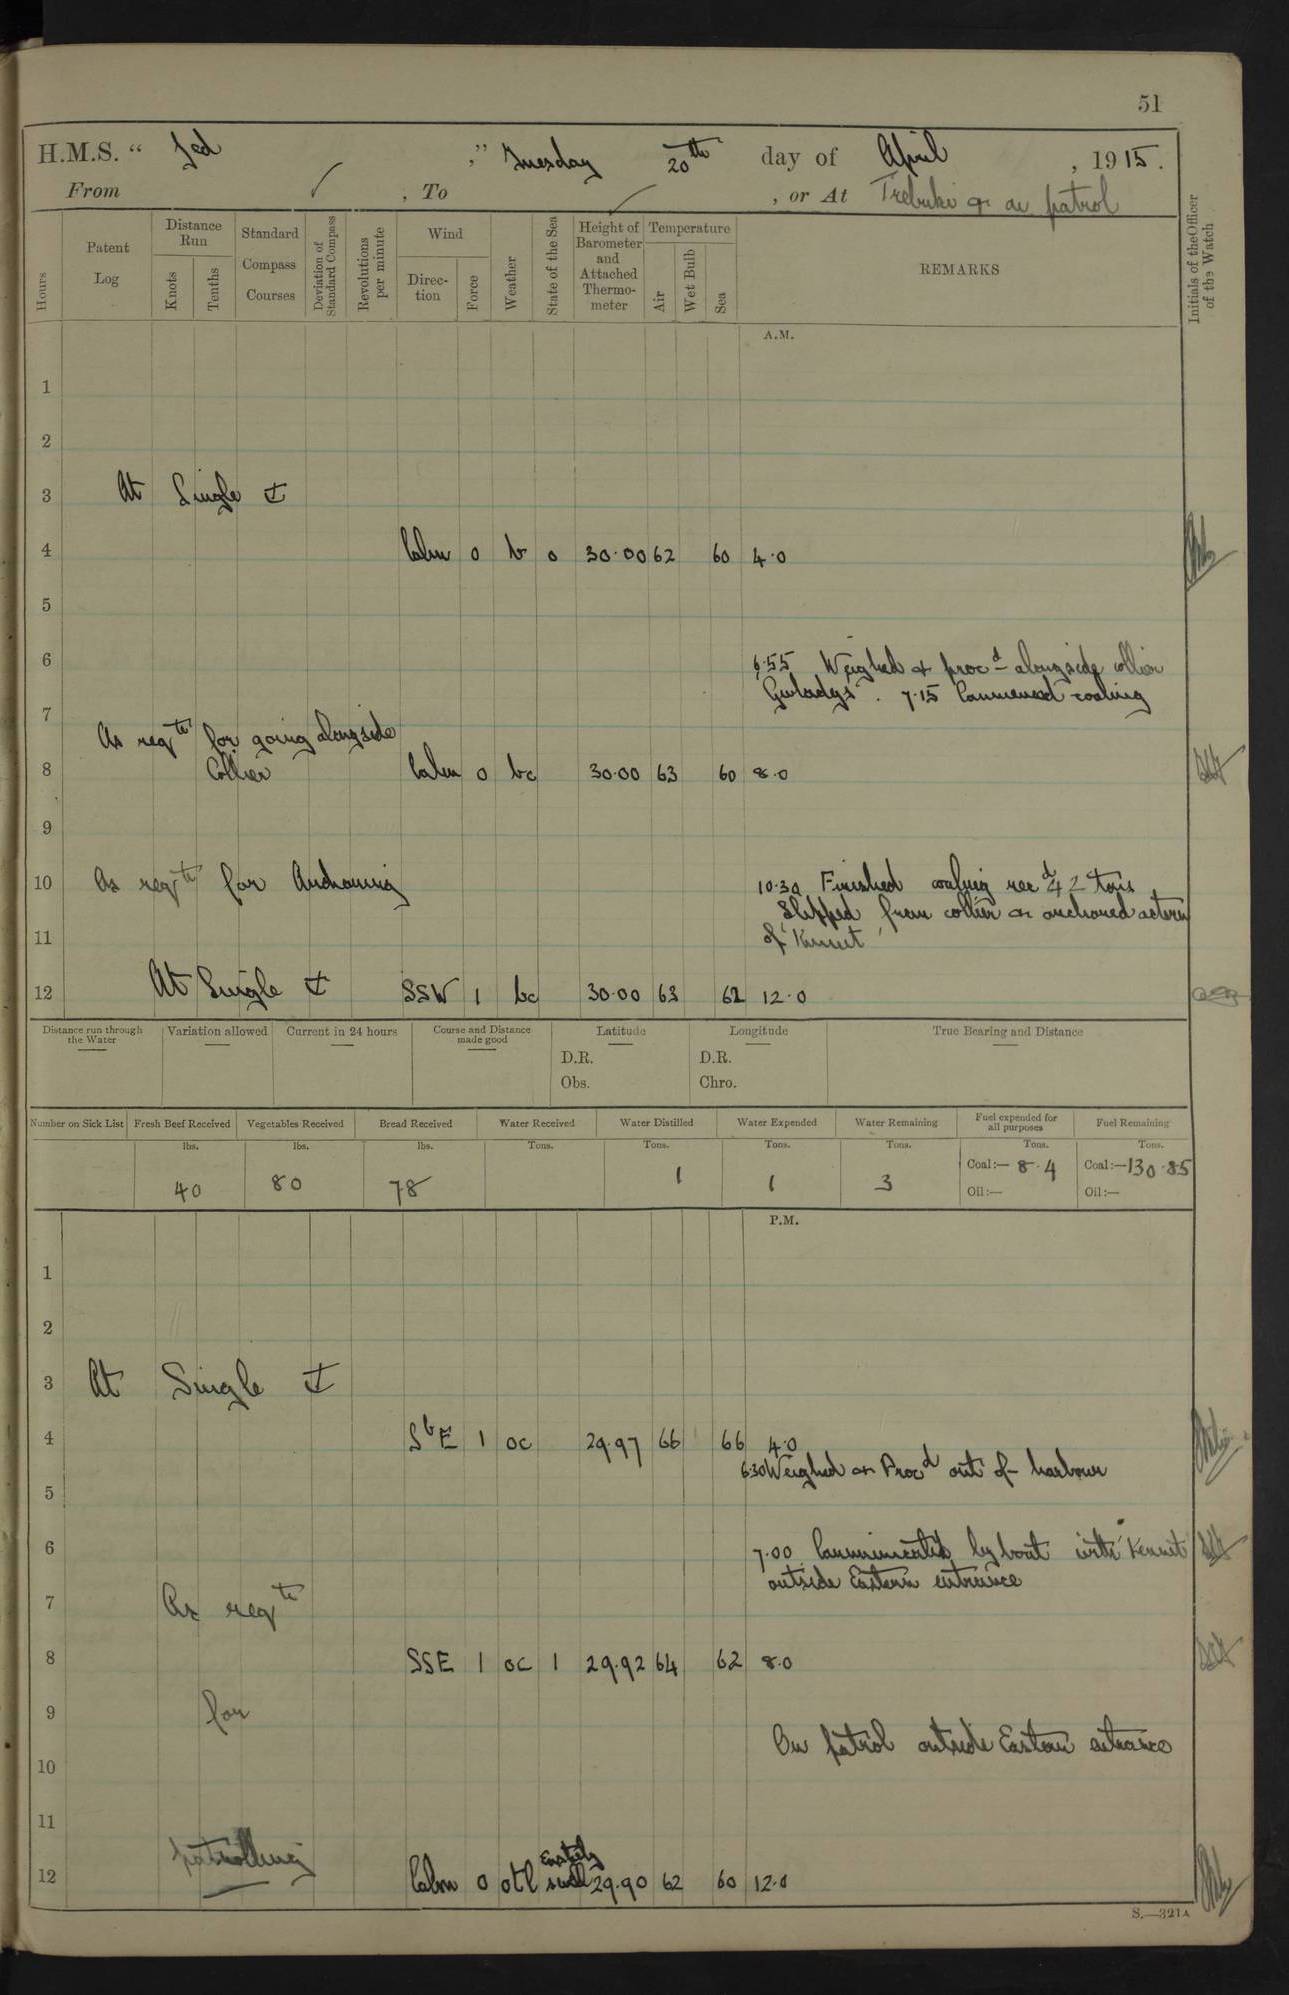 51
H.M.S. “ Jed ,” Tuesday 20th day of April , 1915.
From ✓ , To ✓ , or At Trebuki & on patrol
Hours
Patent Log
Distance Run
Knots
Tenths
Standard Compass Courses
Deviation of Standard Compass
Revolutions per minute
Wind
Direction
Force
Weather
State of the Sea
Height of Barometer and Attached Thermometer
Temperature
Air
Wet Bulb
Sea
REMARKS
Initials of the Officer of the Watch
A.M.
1
2
3 At Single ⚓
4 Calm 0 b 0 30.00 62 60 4.0
5
6 6.55 Weighed & procd alongside collier
"Gwladys". 7.15 Commenced coaling
7
As reqte for going alongside
8 Collier Calm 0 bc 30.00 63 60 8.0
9
10 As reqte for Anchoring 10.30 Finished coaling recd 42 tons
Slipped from collier & anchored astern
11 of 'Kennet'
12 At Single ⚓ SSW 1 bc 30.00 63 62 12.0
Distance run through the Water
Variation allowed
Current in 24 hours
Course and Distance made good
Latitude
D.R.
Obs.
Longitude
D.R.
Chro.
True Bearing and Distance
Number on Sick List
Fresh Beef Received
Vegetables Received
Bread Received
Water Received
Water Distilled
Water Expended
Water Remaining
Fuel expended for all purposes
Fuel Remaining
lbs. lbs. lbs. Tons. Tons. Tons. Tons. Tons. Tons.
40 80 78 1 1 3 Coal:— 8.4 Coal:—130.85
Oil:— Oil:—
P.M.
1
2
3 At Single ⚓
4 SbE 1 oc 29.97 66 66 4.0
6.30 Weighed & Procd out of harbour
5
6 7.00 Communicated by boat with 'Kennet'
outside Eastern entrance
7 As reqte
8 SSE 1 oc 1 29.92 64 62 8.0
9 for
On patrol outside Eastern entrance
10
11
patrolling
12 Calm 0 otl Easterly swell 29.90 62 60 12.0
S.—321A